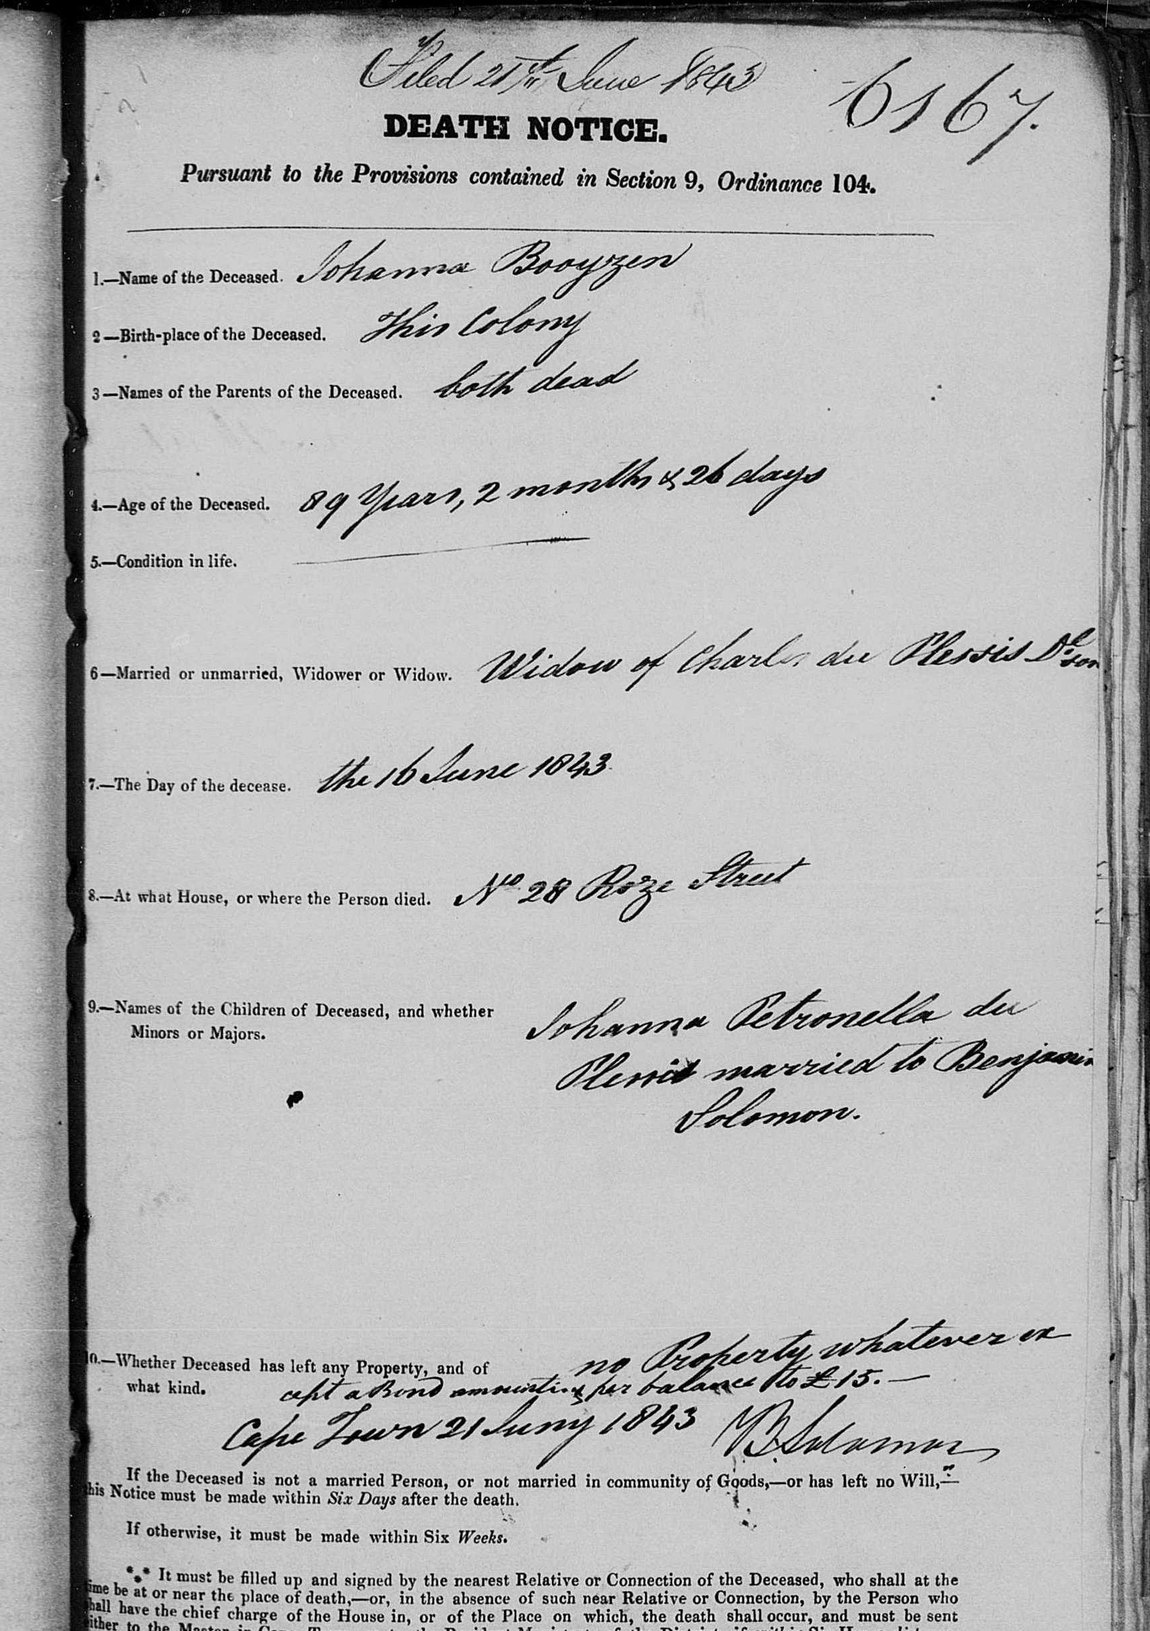 Filed 21st June 1843
6167.
DEATH NOTICE.
Pursuant to the Provisions contained in Section 9, Ordinance 104.
1.—Name of the Deceased. Johanna Booyzen
2—Birth-place of the Deceased. This Colony
3—Names of the Parents of the Deceased. both dead
4.—Age of the Deceased. 89 Years, 2 months & 26 days
5.—Condition in life.
6—Married or unmarried, Widower or Widow. Widow of Charles du Plessis Dl son
7.—The Day of the decease. the 16 June 1843
8.—At what House, or where the Person died. No 28 Roze Street
9.—Names of the Children of Deceased, and whether
Minors or Majors.
Johanna Petronella du
Plessis married to Benjamin
Solomon.
0.—Whether Deceased has left any Property, and of
what kind.
no Property whatever ex
cept a Bond amounting per balance to £15.—
Cape Town 21 Juny 1843 B Solomon
If the Deceased is not a married Person, or not married in community of Goods,—or has left no Will,—
his Notice must be made within Six Days after the death.
If otherwise, it must be made within Six Weeks.
*** It must be filled up and signed by the nearest Relative or Connection of the Deceased, who shall at the
ime be at or near the place of death,—or, in the absence of such near Relative or Connection, by the Person who
hall have the chief charge of the House in, or of the Place on which, the death shall occur, and must be sent
either to the Master in Cape